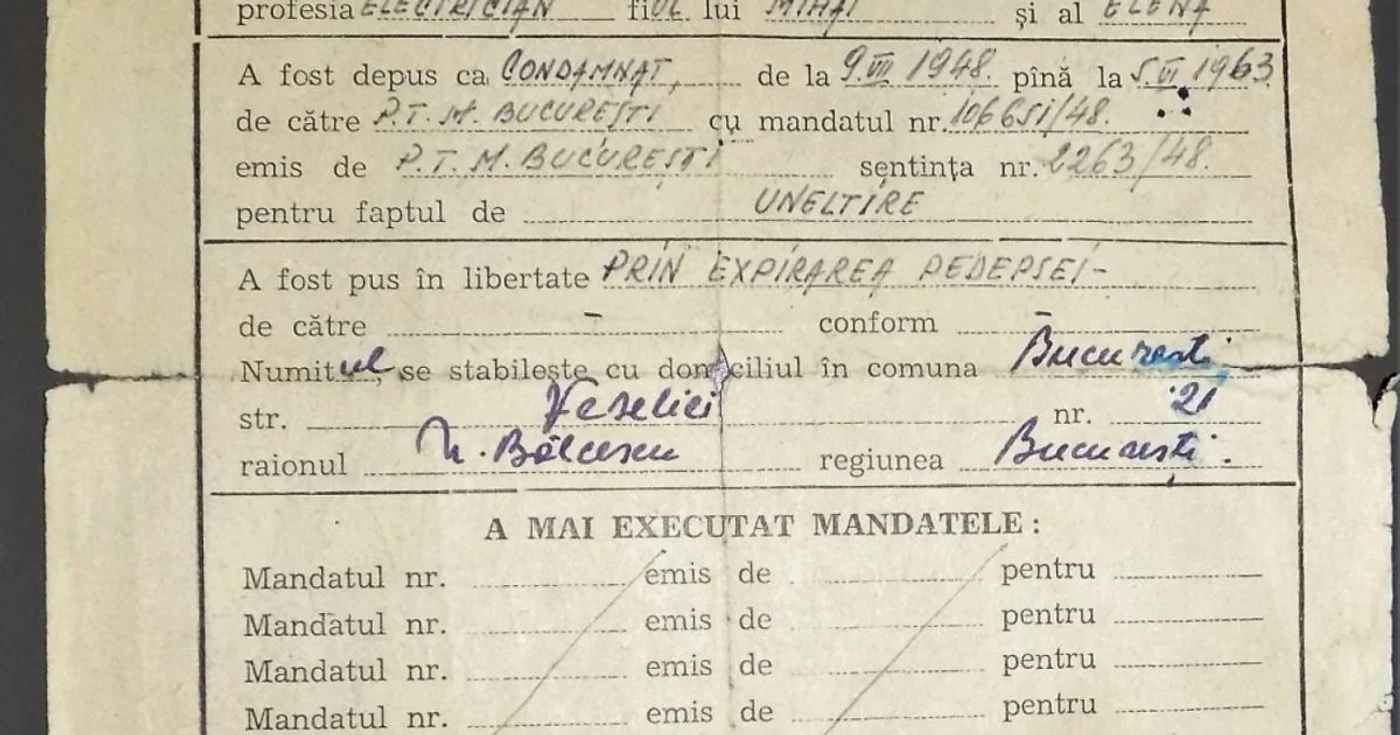 profesia ELECTRICIAN fiUL lui MIHAI și al ELENA
A fost depus ca CONDAMNAT, de la 9.VII 1948. pînă la 5.VI 1963
de către P.T.M. BUCUREȘTI cu mandatul nr. 106651/48.
emis de P.T.M. BUCUREȘTI sentința nr. 2263/48.
pentru faptul de UNELTIRE
A fost pus în libertate PRIN EXPIRAREA PEDEPSEI-
de către - conform -
Numitul, se stabilește cu domiciliul în comuna București
str. Veseliei nr. 21
raionul N. Bălcescu regiunea București.
A MAI EXECUTAT MANDATELE:
Mandatul nr. emis de pentru
Mandatul nr. emis de pentru
Mandatul nr. emis de pentru
Mandatul nr. emis de pentru